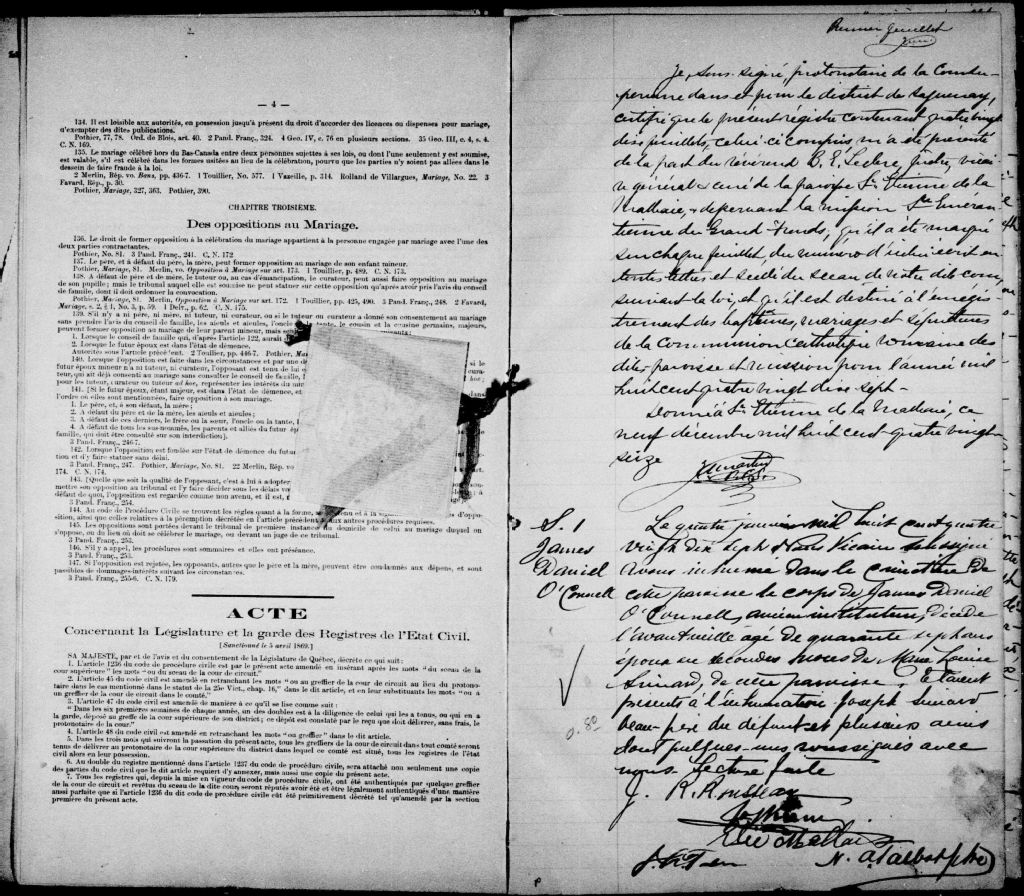 — 4 —
134. Il est loisible aux autorités, en possession jusqu'à présent du droit d'accorder des licences ou dispenses pour mariage,
d'exempter des dites publications.
Pothier, 77, 78. Ord. de Blois, art. 40. 2 Pand. Franç., 324. 4 Geo. IV, c. 76 en plusieurs sections. 35 Geo. III, c. 4, s. 4.
C. N. 169.
135. Le mariage célébré hors du Bas-Canada entre deux personnes sujettes à ses lois, ou dont l'une seulement y est soumise,
est valable, s'il est célébré dans les formes usitées au lieu de la célébration, pourvu que les parties n'y soient pas allées dans le
dessein de faire fraude à la loi.
2 Merlin, Rép. vo Bans, pp. 436-7. 1 Touillier, No. 577. 1 Vazeille, p. 314. Rolland de Villargues, Mariage, No. 22. 3
Favard, Rép., p. 30.
Pothier, Mariage, 327, 363. Pothier, 390.
CHAPITRE TROISIÈME.
Des oppositions au Mariage.
136. Le droit de former opposition à la célébration du mariage appartient à la personne engagée par mariage avec l'une des
deux parties contractantes.
Pothier, No. 81. 3 Pand. Franç., 241. C. N. 172
137. Le père, et à défaut du père, la mère, peut former opposition au mariage de son enfant mineur.
Pothier, Mariage, 81. Merlin, vo. Opposition à Mariage sur art. 173. 1 Touillier, p. 489. C. N. 173.
138. A défaut de père et de mère, le tuteur ou, au cas d'émancipation, le curateur, peut aussi faire opposition au mariage
de son pupille; mais le tribunal auquel elle est soumise ne peut statuer sur cette opposition qu'après avoir pris l'avis du conseil
de famille, dont il doit ordonner la convocation.
Pothier, Mariage, 81. Merlin, Opposition à Mariage sur art. 172. 1 Touillier, pp. 425, 490. 3 Pand. Franç., 248. 2 Favard,
Mariage, s. 2, § 1, No. 3, p. 59. 1 p. 62. C. N. 175.
139. S'il n'y a ni père, ni mère, ni tuteur, ni curateur, ou si le tuteur ou curateur a donné son consentement au mariage
sans prendre l'avis du conseil de famille, les aïeuls et aïeules, l'oncle la tante, le cousin et la cousine germains, majeurs,
peuvent former opposition au mariage de leur parent mineur, mais
1. Lorsque le conseil de famille qui, d'après l'article 122, aurait
2. Lorsque le futur époux est dans l'état de démence.
Autorités sous l'article 2 Touillier, pp. 446-7. Pothier,
140. Lorsque l'opposition est faite dans les circonstances et par une
futur époux mineur n'a ni tuteur, ni curateur, l'opposant est tenu de lui
teur, qui ait déjà consenti au mariage sans consulter le conseil de famille,
pour les tuteur, curateur ou tuteur ad hoc, représenter les intérêts du
141. [Si le futur époux, étant majeur, est dans l'état de démence, et
l'ordre où elles sont mentionnées, faire opposition à son mariage.
1. Le père, et, à son défaut, la mère;
2. A défaut du père et de la mère, les aïeuls et aïeules;
3. A défaut de ces derniers, le frère ou la sœur, l'oncle ou la tante,
4. A défaut de tous les sus-nommés, les parents et alliés du futur
famille, qui doit être consulté sur son interdiction].
3 Pand. Franç., 246-7.
142. Lorsque l'opposition est fondée sur l'état de démence du futur
tion et d'y faire statuer sans délai.
3 Pand. Franç., 247. Pothier, Mariage, No. 81. 22 Merlin, Rép. vo
174. C. N. 174.
143. [Quelle que soit la qualité de l'opposant, c'est à lui à adopter
mettre son opposition au tribunal et l'y faire décider sous les délais
défaut de quoi, l'opposition est regardée comme non avenu, et il est,
3 Pand. Franç., 254.
144. Au code de Procédure Civile se trouvent les règles quant à la forme, et à la d'oppo-
sition, ainsi que celles relatives à la péremption décrétée en l'article et aux autres procédures requises.
145. Les oppositions sont portées devant le tribunal de première instance du domicile de celui au mariage duquel on
s'oppose, ou du lieu où doit se célébrer le mariage, ou devant un juge de ce tribunal.
3 Pand. Franç., 253.
146. S'il y a appel, les procédures sont sommaires et elles ont préséance.
3 Pand. Franç., 253.
147. Si l'opposition est rejetée, les opposants, autres que le père et la mère, peuvent être condamnés aux dépens, et sont
passibles de dommages-intérêts suivant les circonstances.
3 Pand. Franç., 255-6. C. N. 179.
ACTE
Concernant la Législature et la garde des Registres de l'Etat Civil.
[Sanctionné le 5 avril 1869.]
SA MAJESTE, par et de l'avis et du consentement de la Législature de Québec, décrète ce qui suit:
1. L'article 1236 du code de procédure civile est par le présent acte amendé en insérant après les mots "du sceau de la
cour supérieure" les mots "ou du sceau de la cour de circuit."
2. L'article 45 du code civil est amendé en retranchant les mots "ou au greffier de la cour de circuit au lieu du protono-
taire dans le cas mentionné dans le statut de la 25e Vict., chap. 16," dans le dit article, et en leur substituants les mots "ou à
un greffier de la cour de circuit dans le comté."
3. L'article 47 du code civil est amendé de manière à ce qu'il se lise comme suit:
"Dans les six premières semaines de chaque année, un des doubles est à la diligence de celui qui les a tenus, ou qui en a
la garde, déposé au greffe de la cour supérieure de son district; ce dépôt est constaté par le reçu que doit délivrer, sans frais, le
protonotaire de la cour."
4. L'article 48 du code civil est amendé en retranchant les mots "ou greffier" dans le dit article.
5. Dans les trois mois qui suivront la passation du présent acte, tous les greffiers de la cour de circuit dans tout comté seront
tenus de délivrer au protonotaire de la cour supérieure du district dans lequel ce comté est situé, tous les registres de l'état
civil alors en leur possession.
6. Au double du registre mentionné dans l'article 1237 du code de procédure civile, sera attaché non seulement une copie
des parties du code civil que le dit article requiert d'y annexer, mais aussi une copie du présent acte.
7. Tous les registres qui, depuis la mise en vigueur du code de procédure civile, ont été authentiqués par quelque greffier
de la cour de circuit et revêtus du sceau de la dite cour, seront réputés avoir été et être légalement authentiqués d'une manière
aussi parfaite que si l'article 1236 du dit code de procédure civile eût été primitivement décrété tel qu'amendé par la section
première du présent acte.
Premier feuillet
Je, sous-signé, protonotaire de la Cour su-
périeure dans et pour le district de Saguenay,
certifie que le présent régistre contenant quatre vingt
dix feuillets, celui-ci compris m'a été présenté
de la part du révérend B. E. Leclerc, Prêtre, vicai
re général & curé de la paroisse St. Etienne de la
Malbaie, & desservant la mission Ste Eméran
tienne du Grand-Fonds, qu'il a été marqué
sur chaque feuillet, du numéro d'icelui écrit en
toutes lettres et scellé du sceau de notre dite cour,
suivant la loi, et qu'il est destiné à l'enrégis-
trement des baptêmes, mariages et sépultures
de la Communion Catholique romaine des
dites paroisse et mission pour l'année mil
huit cent quatre vingt dix sept.
Donné à St. Etienne de la Malbaie, ce
neuf décembre mil huit cent quatre vingt-
seize
S. 1
James
Daniel
O'Connell
Le quatre janvier mil huit cent quatre
vingt dix sept Nous Vicaire soussigné
avons inhumé dans le cimetière de
cette paroisse le corps de James Daniel
O'Connell, ancien instituteur, décédé
l'avant veille âgé de quarante sept ans
époux en secondes noces de Marie Louise
Simard, de cette paroisse. Etaient
présents à l'inhumation Joseph Simard
beau-père du défunt et plusieurs amis
dont quelques-uns soussignés avec
nous. Lecture faite
J. R. Rousseau
Elie Maltais
N. A. Talbot ptre